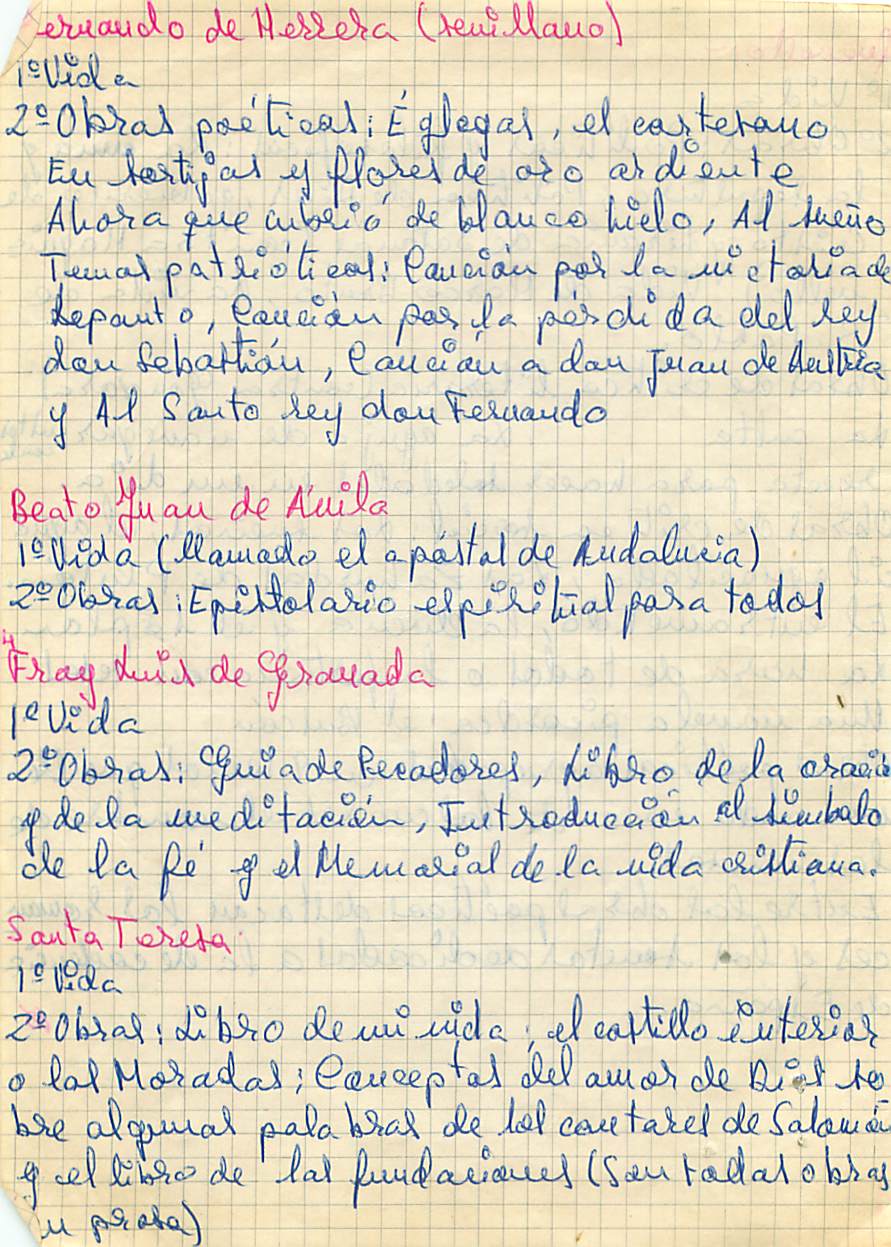 ernando de Herrera (sevillano)
1º Vida
2º Obras poéticas: Églogas, el cartesano
En sortijas y flores de oro ardiente
Ahora que cubrió de blanco hielo, Al sueño
Temas patrióticos: Canción por la victoria de
Lepanto, Canción por la pérdida del rey
don Sebastián, Canción a don Juan de Austria
y Al Santo rey don Fernando
Beato Juan de Ávila
1º Vida (llamado el apóstol de Andalucia)
2º Obras: Epistolario espiritual para todos
4
Fray Luis de Granada
1º Vida
2º Obras: Guia de Pecadores, Libro de la oració
y de la meditación, Introducción al simbolo
de la fé y el Memorial de la vida cristiana.
Santa Teresa
1º Vida
2º Obras: Libro de mi vida; el castillo interior
o las Moradas; Conceptos del amor de Dios so
bre algunas palabras de los cantares de Salomón
y el libro de las fundaciones (Son todas obras
n prosa)